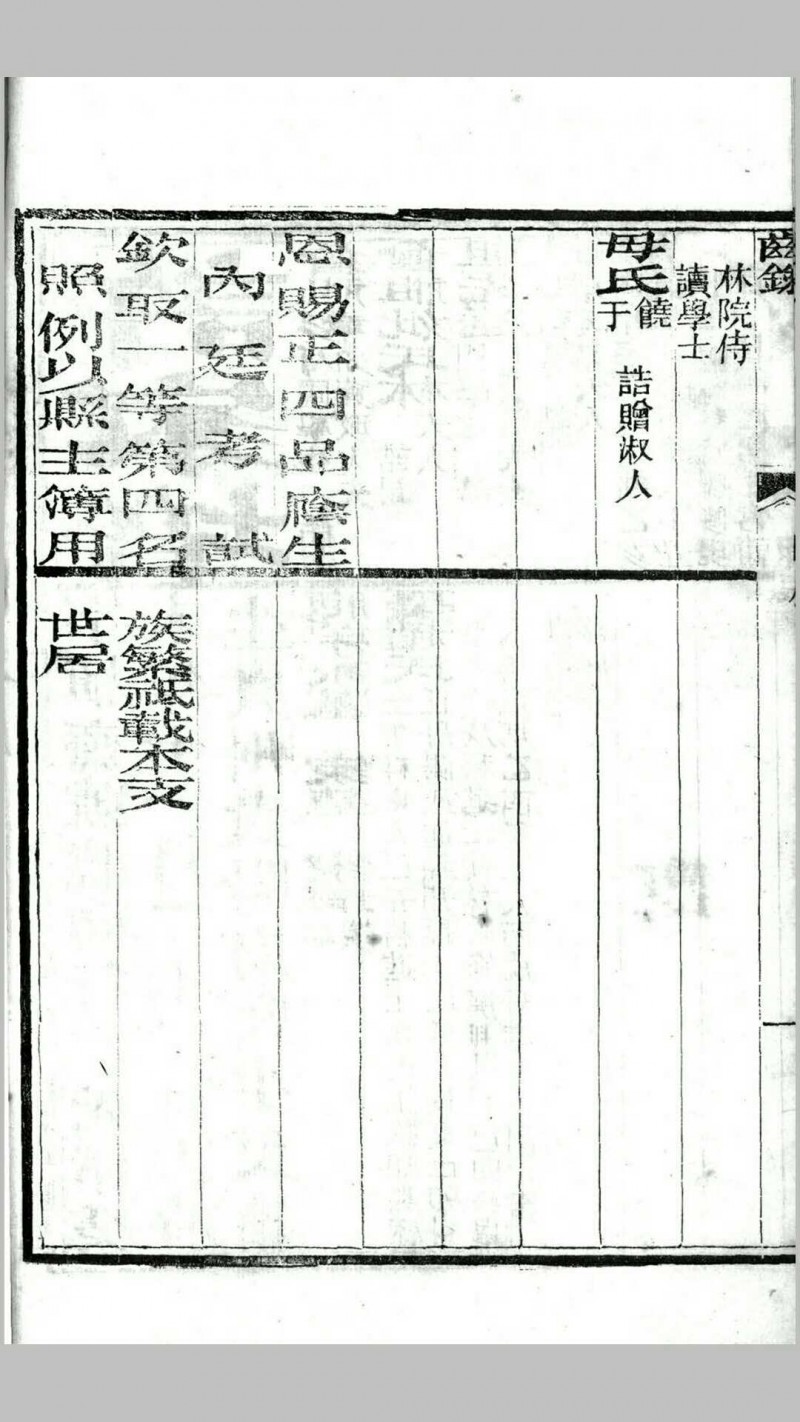 齒錄
林院侍
讀學士
母氏
饒
于
誥贈淑人
恩賜正四品廕生
內廷考試
欽取一等第四名
照例以縣主簿用
族繁祗載本支
世居